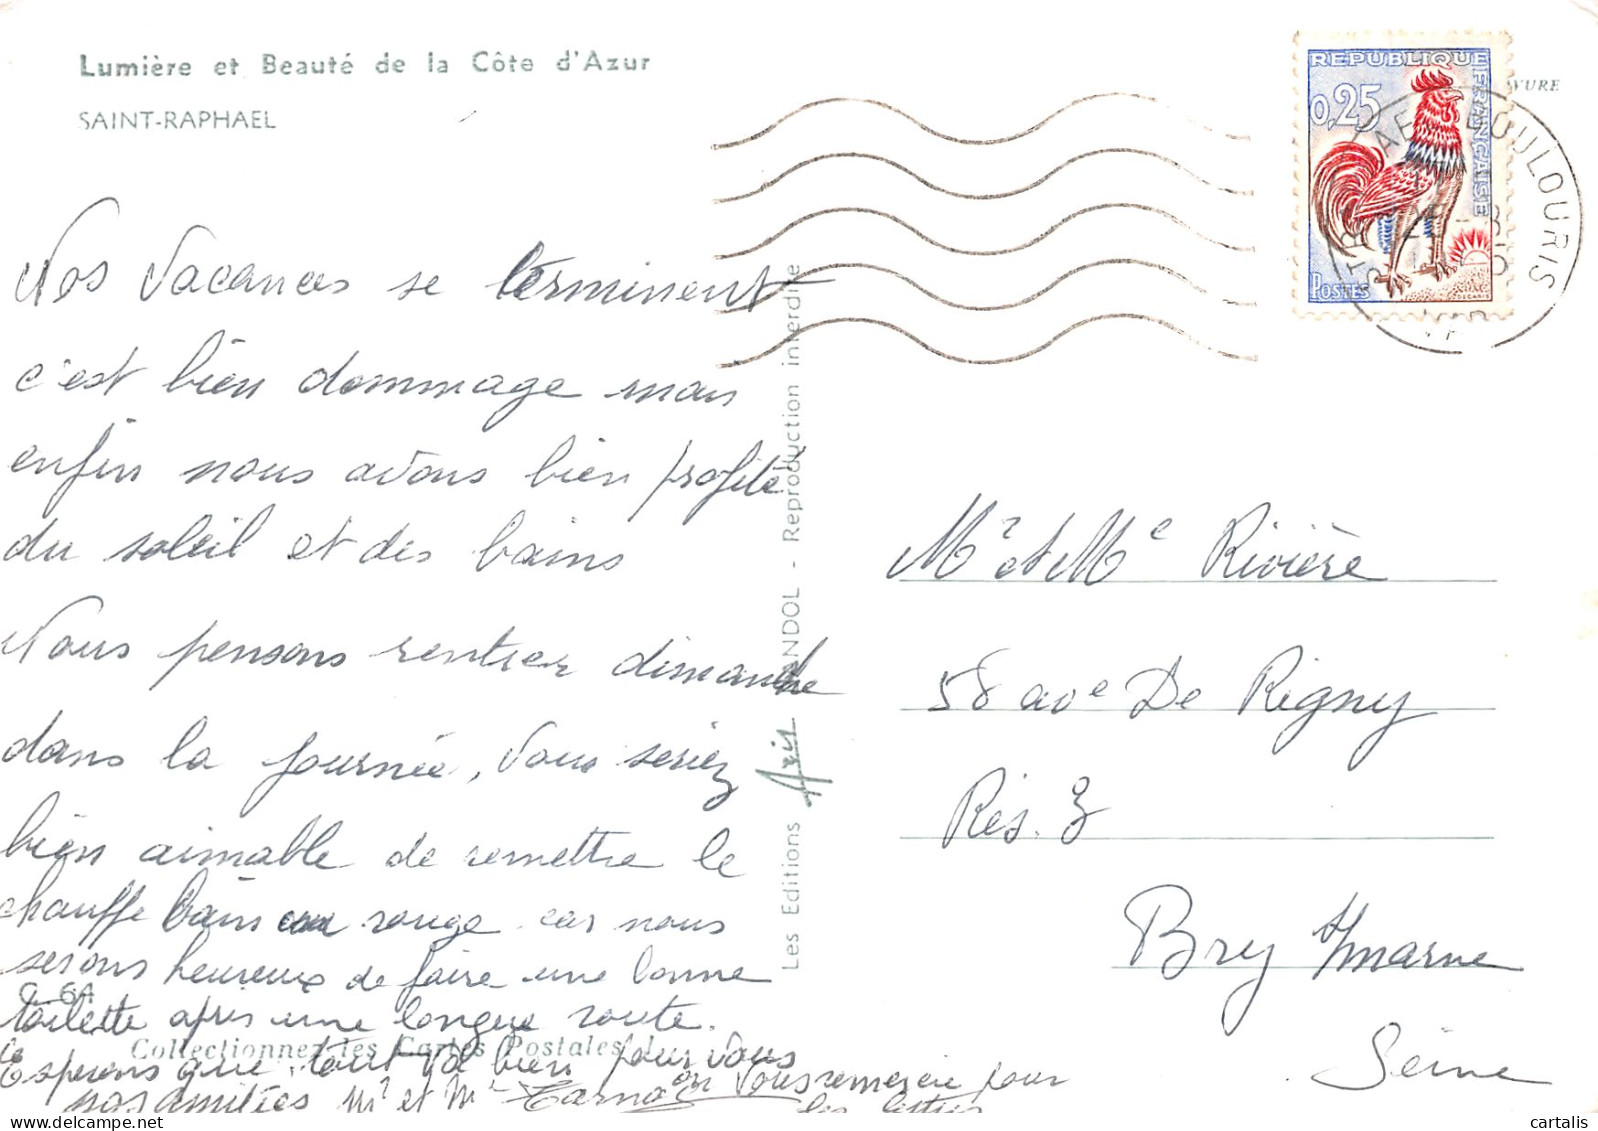 Lumière et Beauté de la Côte d'Azur
SAINT-RAPHAEL
Nos Vacances se terminent
c'est bien dommage mais
enfin nous avons bien profité
du soleil et des bains
Nous pensons rentrer dimanche
dans la journée, vous seriez
bien aimable de remettre le
chauffe bain au rouge car nous
serons heureux de faire une bonne
toilette après une longue route.
Esperons que tout va bien pour vous
nos amitiés Mr et Me
on vous remercie pour
les lettres
64
Collectionnez les Cartes Postales
Les Editions Aris NDOL - Reproduction interdite
VURE
REPUBLIQUE
FRANÇAISE
0,25
POSTES
DECARIS
BOULOURIS
VAR
Mr et Me Rivière
58 ave De Rigny
Rés. 3
Bry s/marne
Seine
cartalis